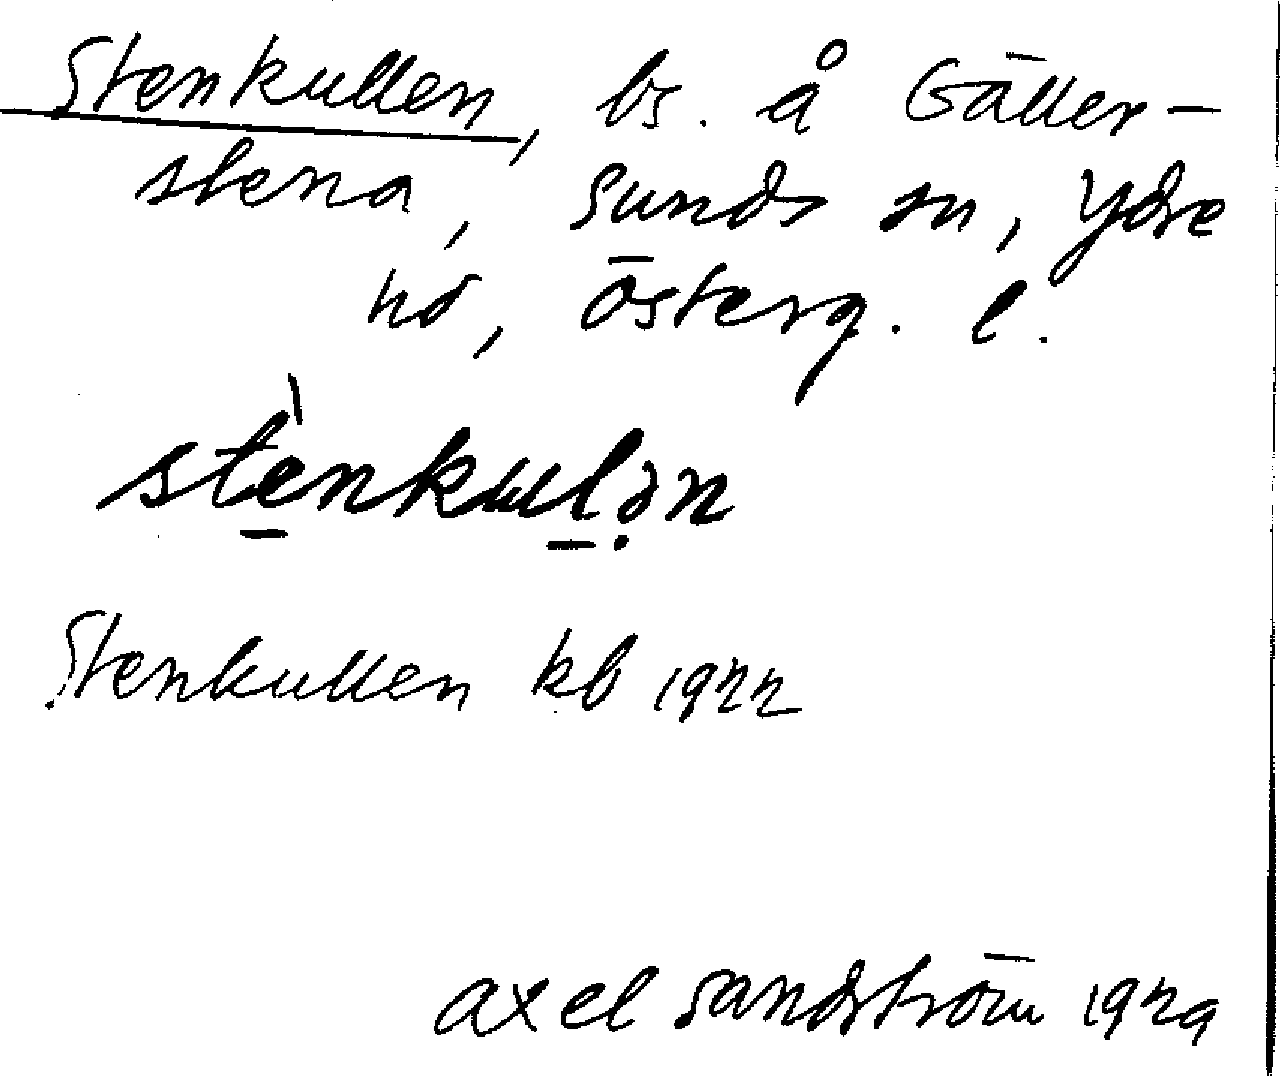 Stenkullen, bs. å Gäller-
stena, Sunds sn, Ydre
hd, Österg. l.
stènkulən
Stenkullen kb 1922
Axel Sandström 1929